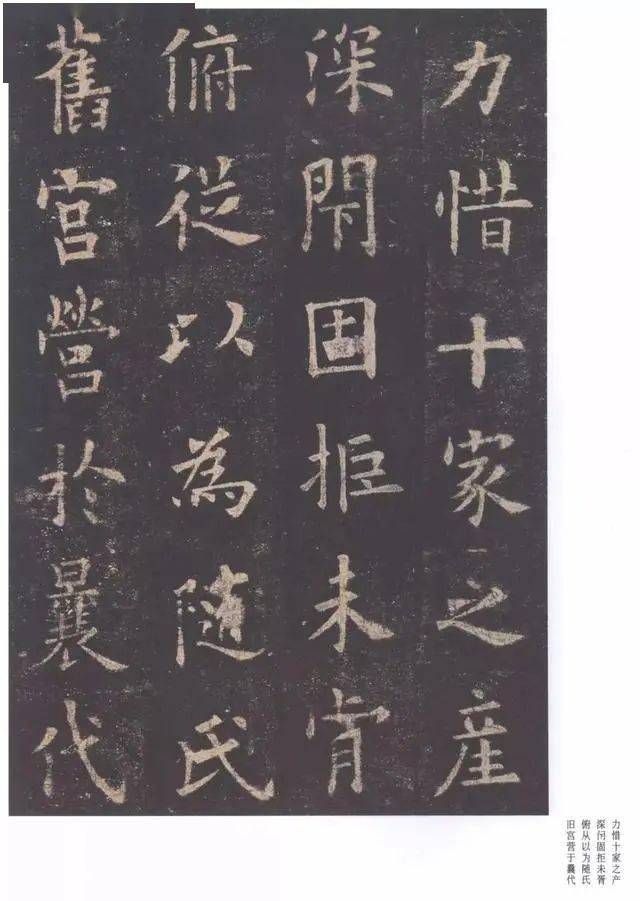 力惜十家之産
深閇固拒未肯
俯從以為隨氏
舊宮營於曩代
力惜十家之产
深闭固拒未肯
俯从以为随氏
旧宫营于曩代